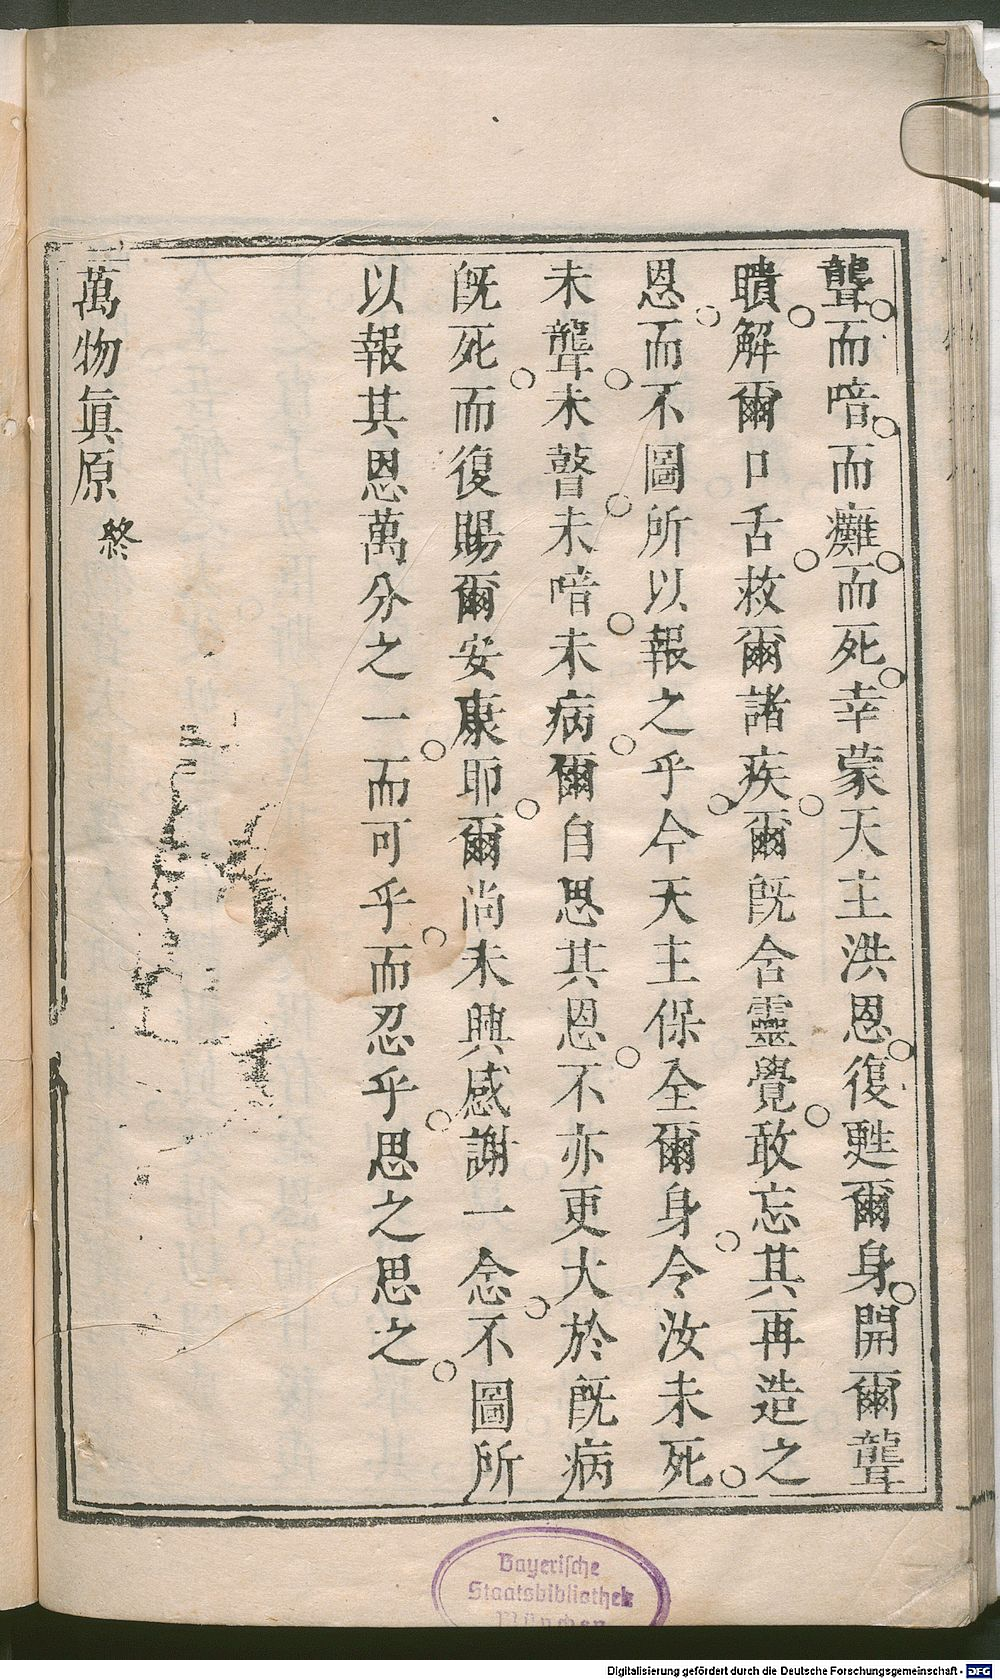 聾而喑而癱而死幸蒙天主洪恩復甦爾身開爾聾
瞶解爾口舌救爾諸疾爾旣含靈覺敢忘其再造之
恩而不圖所以報之乎今天主保全爾身令汝未死
未聾未瞽未喑未病爾自思其恩不亦更大於旣病
旣死而復賜爾安康耶爾尚未興感謝一念不圖所
以報其恩萬分之一而可乎而忍乎思之思之
萬物眞原 終
Bayerische
Staatsbibliothek
München
Digitalisierung gefördert durch die Deutsche Forschungsgemeinschaft - DFG